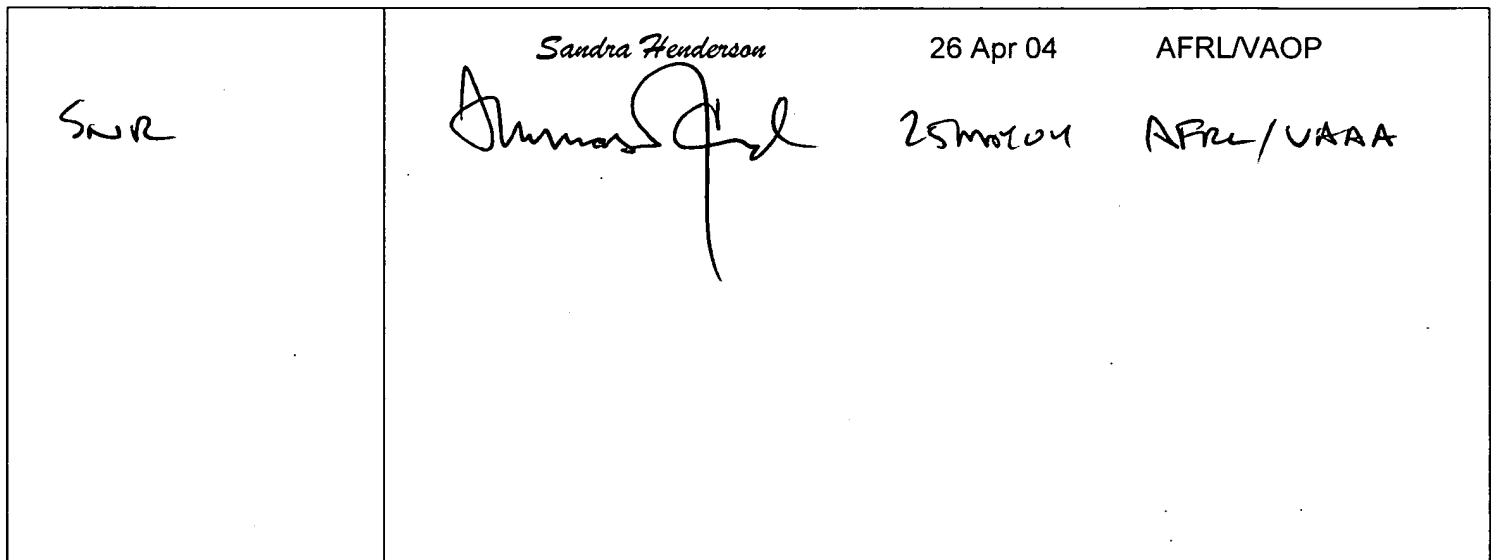 Sandra Henderson 26 Apr 04 AFRL/VAOP
SNR 25May04 AFRL/VAAA